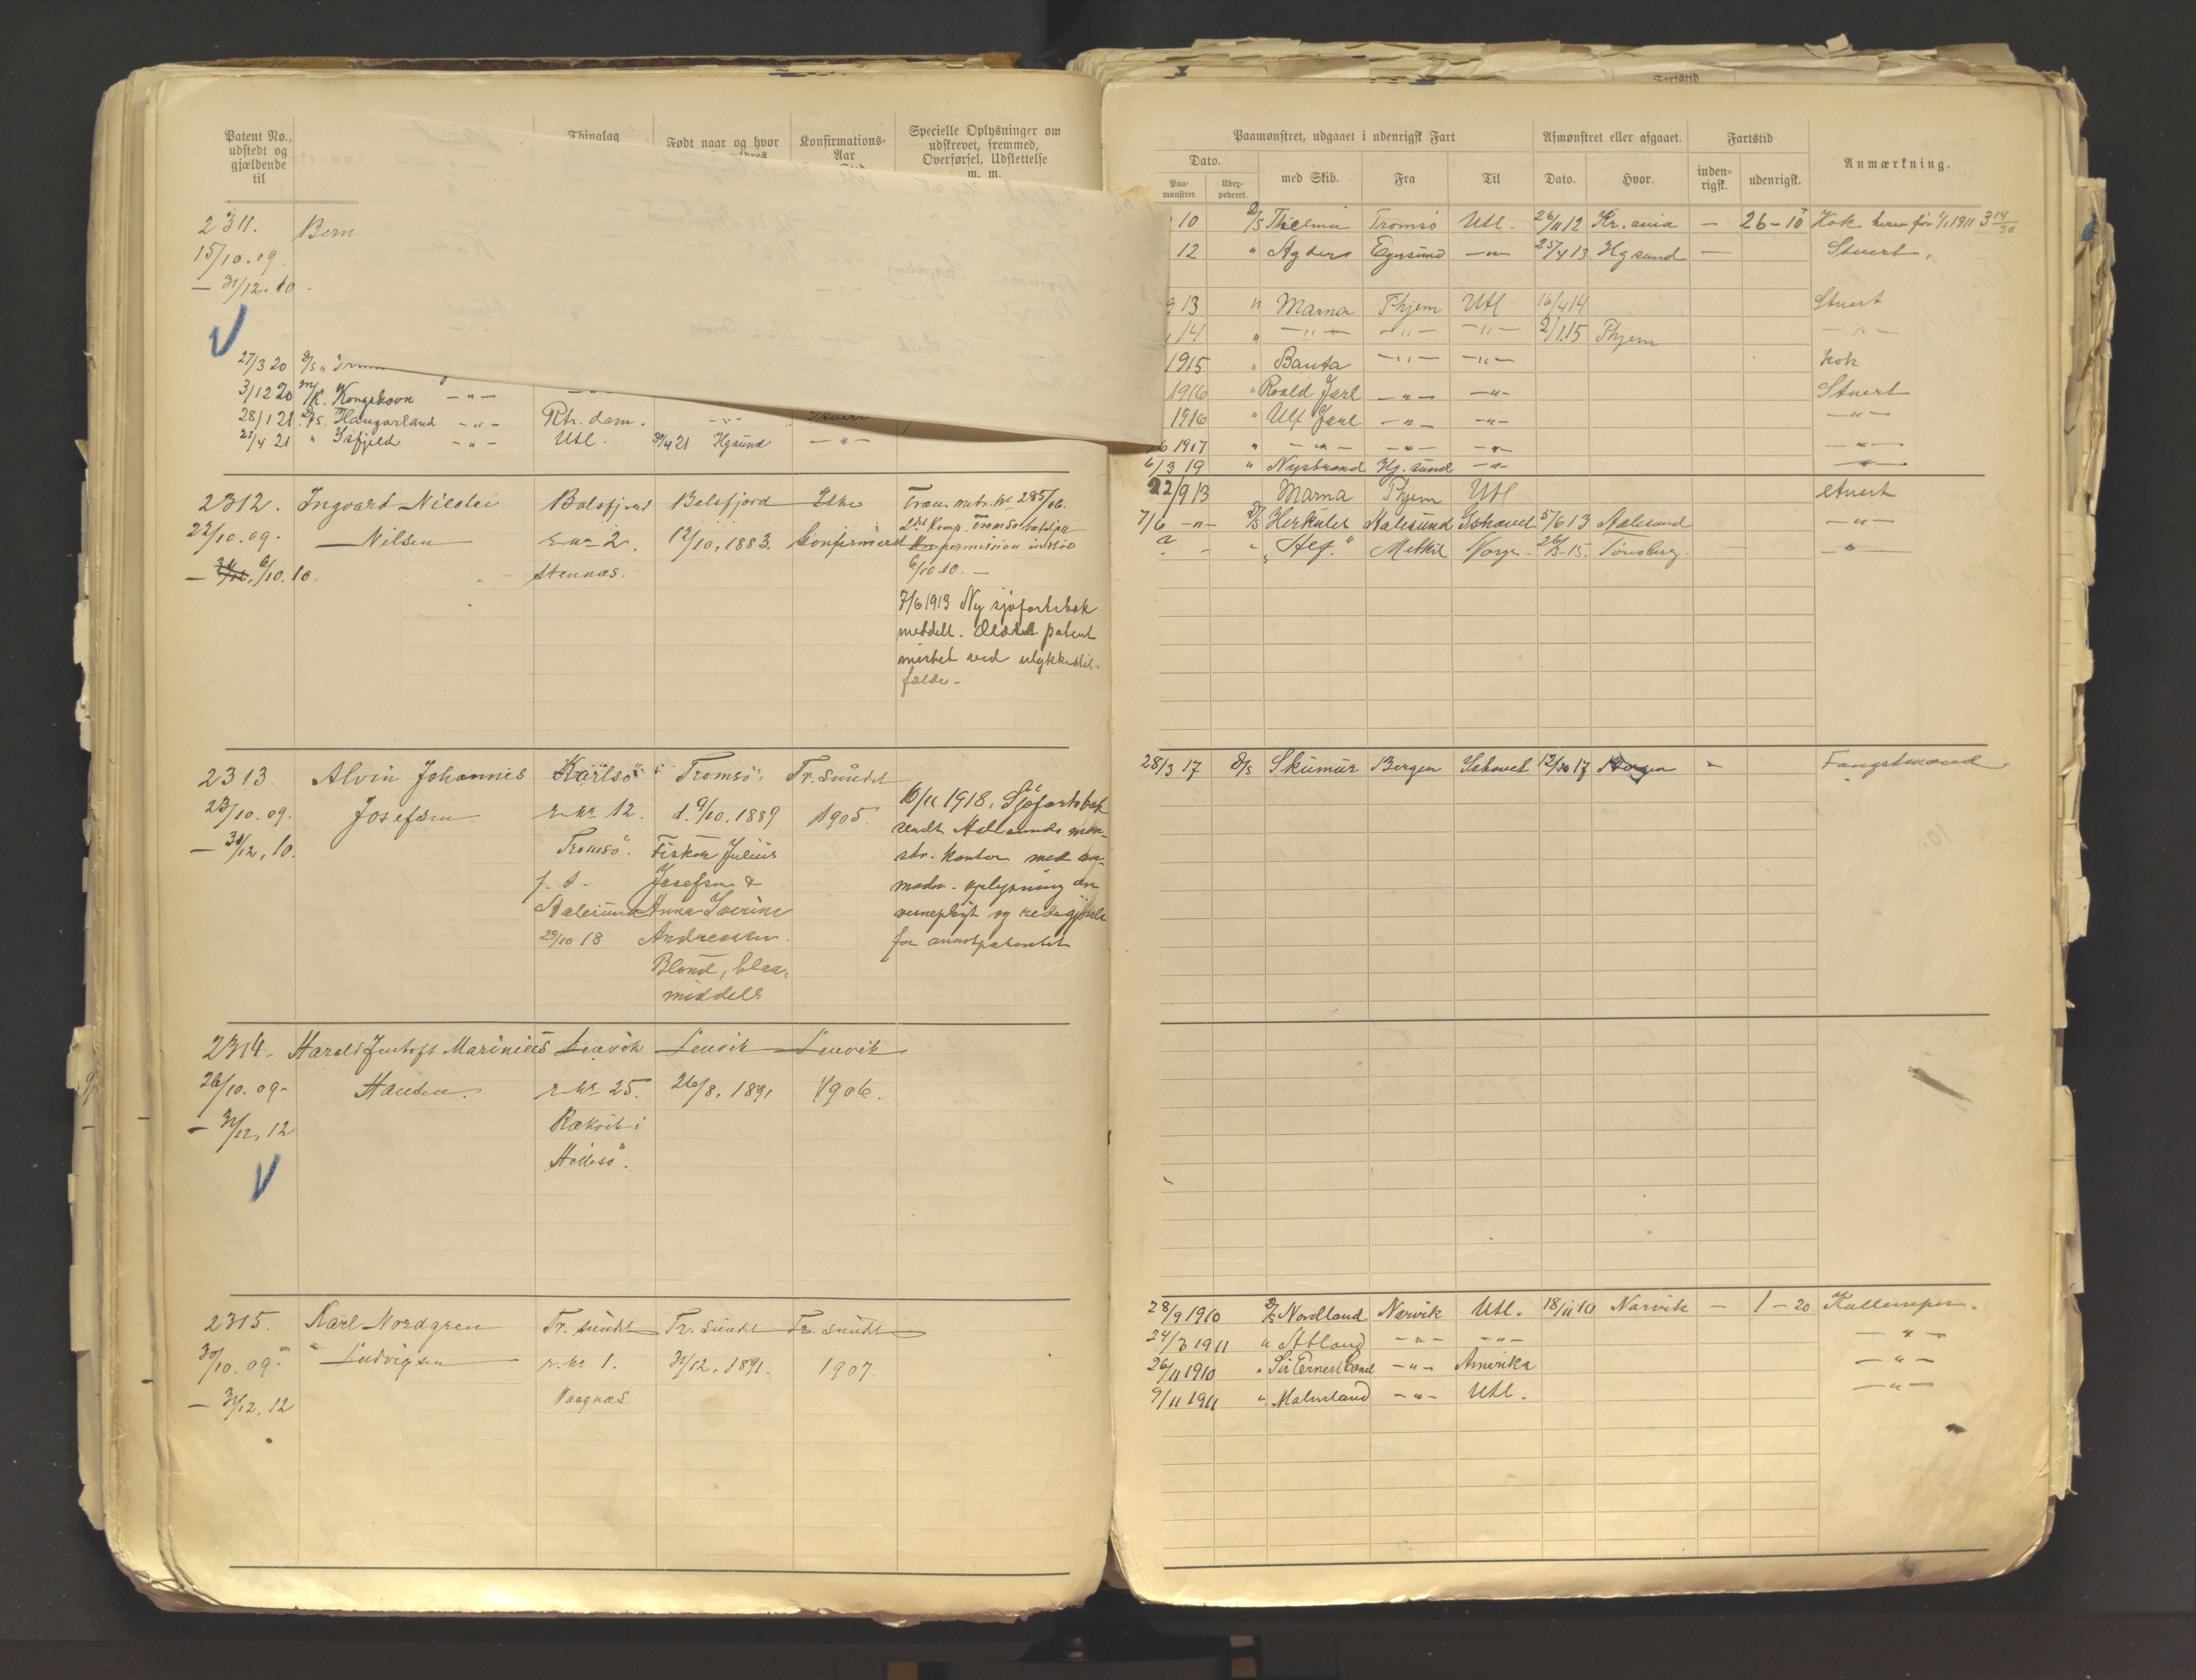 Patent No.,
udstedt og
gjældende
til
Thinglag
Født naar og hvor
Konfirmations-
Aar
Specielle Oplysninger om
udskrevet, fremmed,
Overførsel, Udslettelse
m. m.
2311.
Bern
15/10.09.
— 31/12.10
27/3 20 D/S "
3/12 20 M/K. Kongshavn —"—
28/1 21 D/S. Haugarland —"— Rtr. dam.
21/4 21 " Isfjeld —"— Utl. 30/4 21 Hgsund —"—
2312. Ingvart Nicolai Balsfjord Balsfjord Ikke
22/10.09. Nilsen r. no 2. 12/10.1883. konfirmert
— 6/10.10. Stennæs.
6/10.10. —
7/6 1913 Ny sjøfartsbok
meddelt. Ældre patent
mistet ved ulykkestil-
fælde -
2313. Alvin Johannes Karlsø Tromsø. Tr. sundet
23/10.09. Josefsen r. no 12. d. 9/10.1889 1905.
— 31/12.10. Tromsø. Fisker Julius
f. t. Josefsen &
Aalesund Anna Severine
29/10 18 Andreassen.
Blond, blaa,
middels
16/11 1918. Sjøfartsbok
sendt Aalesunds møn-
str. kontor med an-
modn. oplysning om
verneplikt og redegjørelse
for annotpatentet
2314. Harald Jentoft Marinius Lenvik Lenvik Lenvik
26/10.09. Hansen. r. no 25. 26/8.1891 1906.
— 31/12.12 Rækvik i
Hillesø.
2315. Karl Nordgren Tr. sundet Tr. sundet Tr. sundet
30/10.09. Ludvigsen r. no 1. 31/12.1891. 1907.
— 31/12.12 Vaagnæs
Fartstid
Paamønstret, udgaaet i udenrigsk Fart
Afmønstret eller afgaaet.
Fartstid
Anmærkning.
Dato.
Paa-
mønstret.
Ukes-
pederet.
med Skib.
Fra
Til
Dato.
Hvor.
inden-
rigsk.
udenrigsk.
10 D/S Thelma Tromsø Utl. 26/11 12 Kr.ania — 26-10 Kok
12 " Agders Egersund —"— 25/4 13 Hgsund — Stuert.
13 " Marna Thjem Utl 16/4 14 Stuert
14 " —"— —"— —"— 2/1 15 Thjem —"—
1915 " Banta —"— —"— kok
1916 " Roald Jarl —"— —"— Stuert
1916 " Ulf Jarl —"— —"— —"—
6 1917 " —"— —"— —"— —"—
6/3 19 " Nystrand Hg.sund —"— —"—
22/9 13 Marna Thjem Utl Stuert
7/6 —"— D/S Herkules Aalesund Ishavet 5/6 13 Aalesund —"—
" "Alf." Methil Norge 26/5-15. Tønsberg. — —"—
28/3 17 D/S Skumur Bergen Ishavet 12/10 17 Bergen - Fangstmand
28/9 1910 D/S Nordland Narvik Utl. 18/11 10 Narvik — 1-20 Kullemper.
24/3 1911 " Abland —"— —"— —"—
26/11 1910 " Sir Ernest Cassel —"— Amerika —"—
9/11 1911 " Malmland —"— Utl. —"—